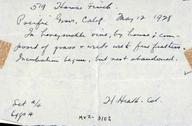 519 House Finch
Pacific Grove, Calif. May 12 1928
In honeysuckle vine, by house; com-
posed of grass & with few feathers.
Incubation begun, but nest abandoned.
Set 4/6
Eggs 4
H. Heath. Col.
MVZ-3102